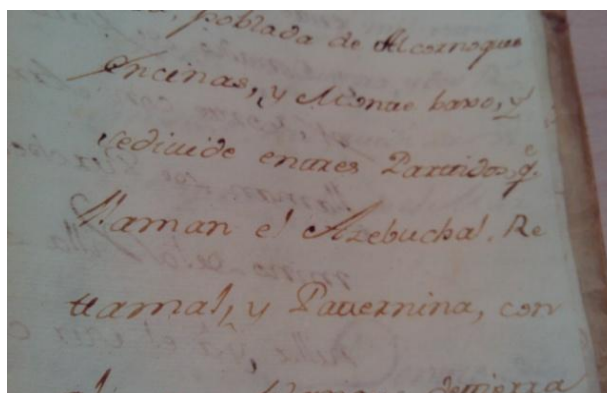 poblada de Alcornoques
encinas, y Monte baxo, y
se diuide en tres Partidos, q.e
llaman el Azebuchal, Re
tamal, y Pauernina, con
de tierra